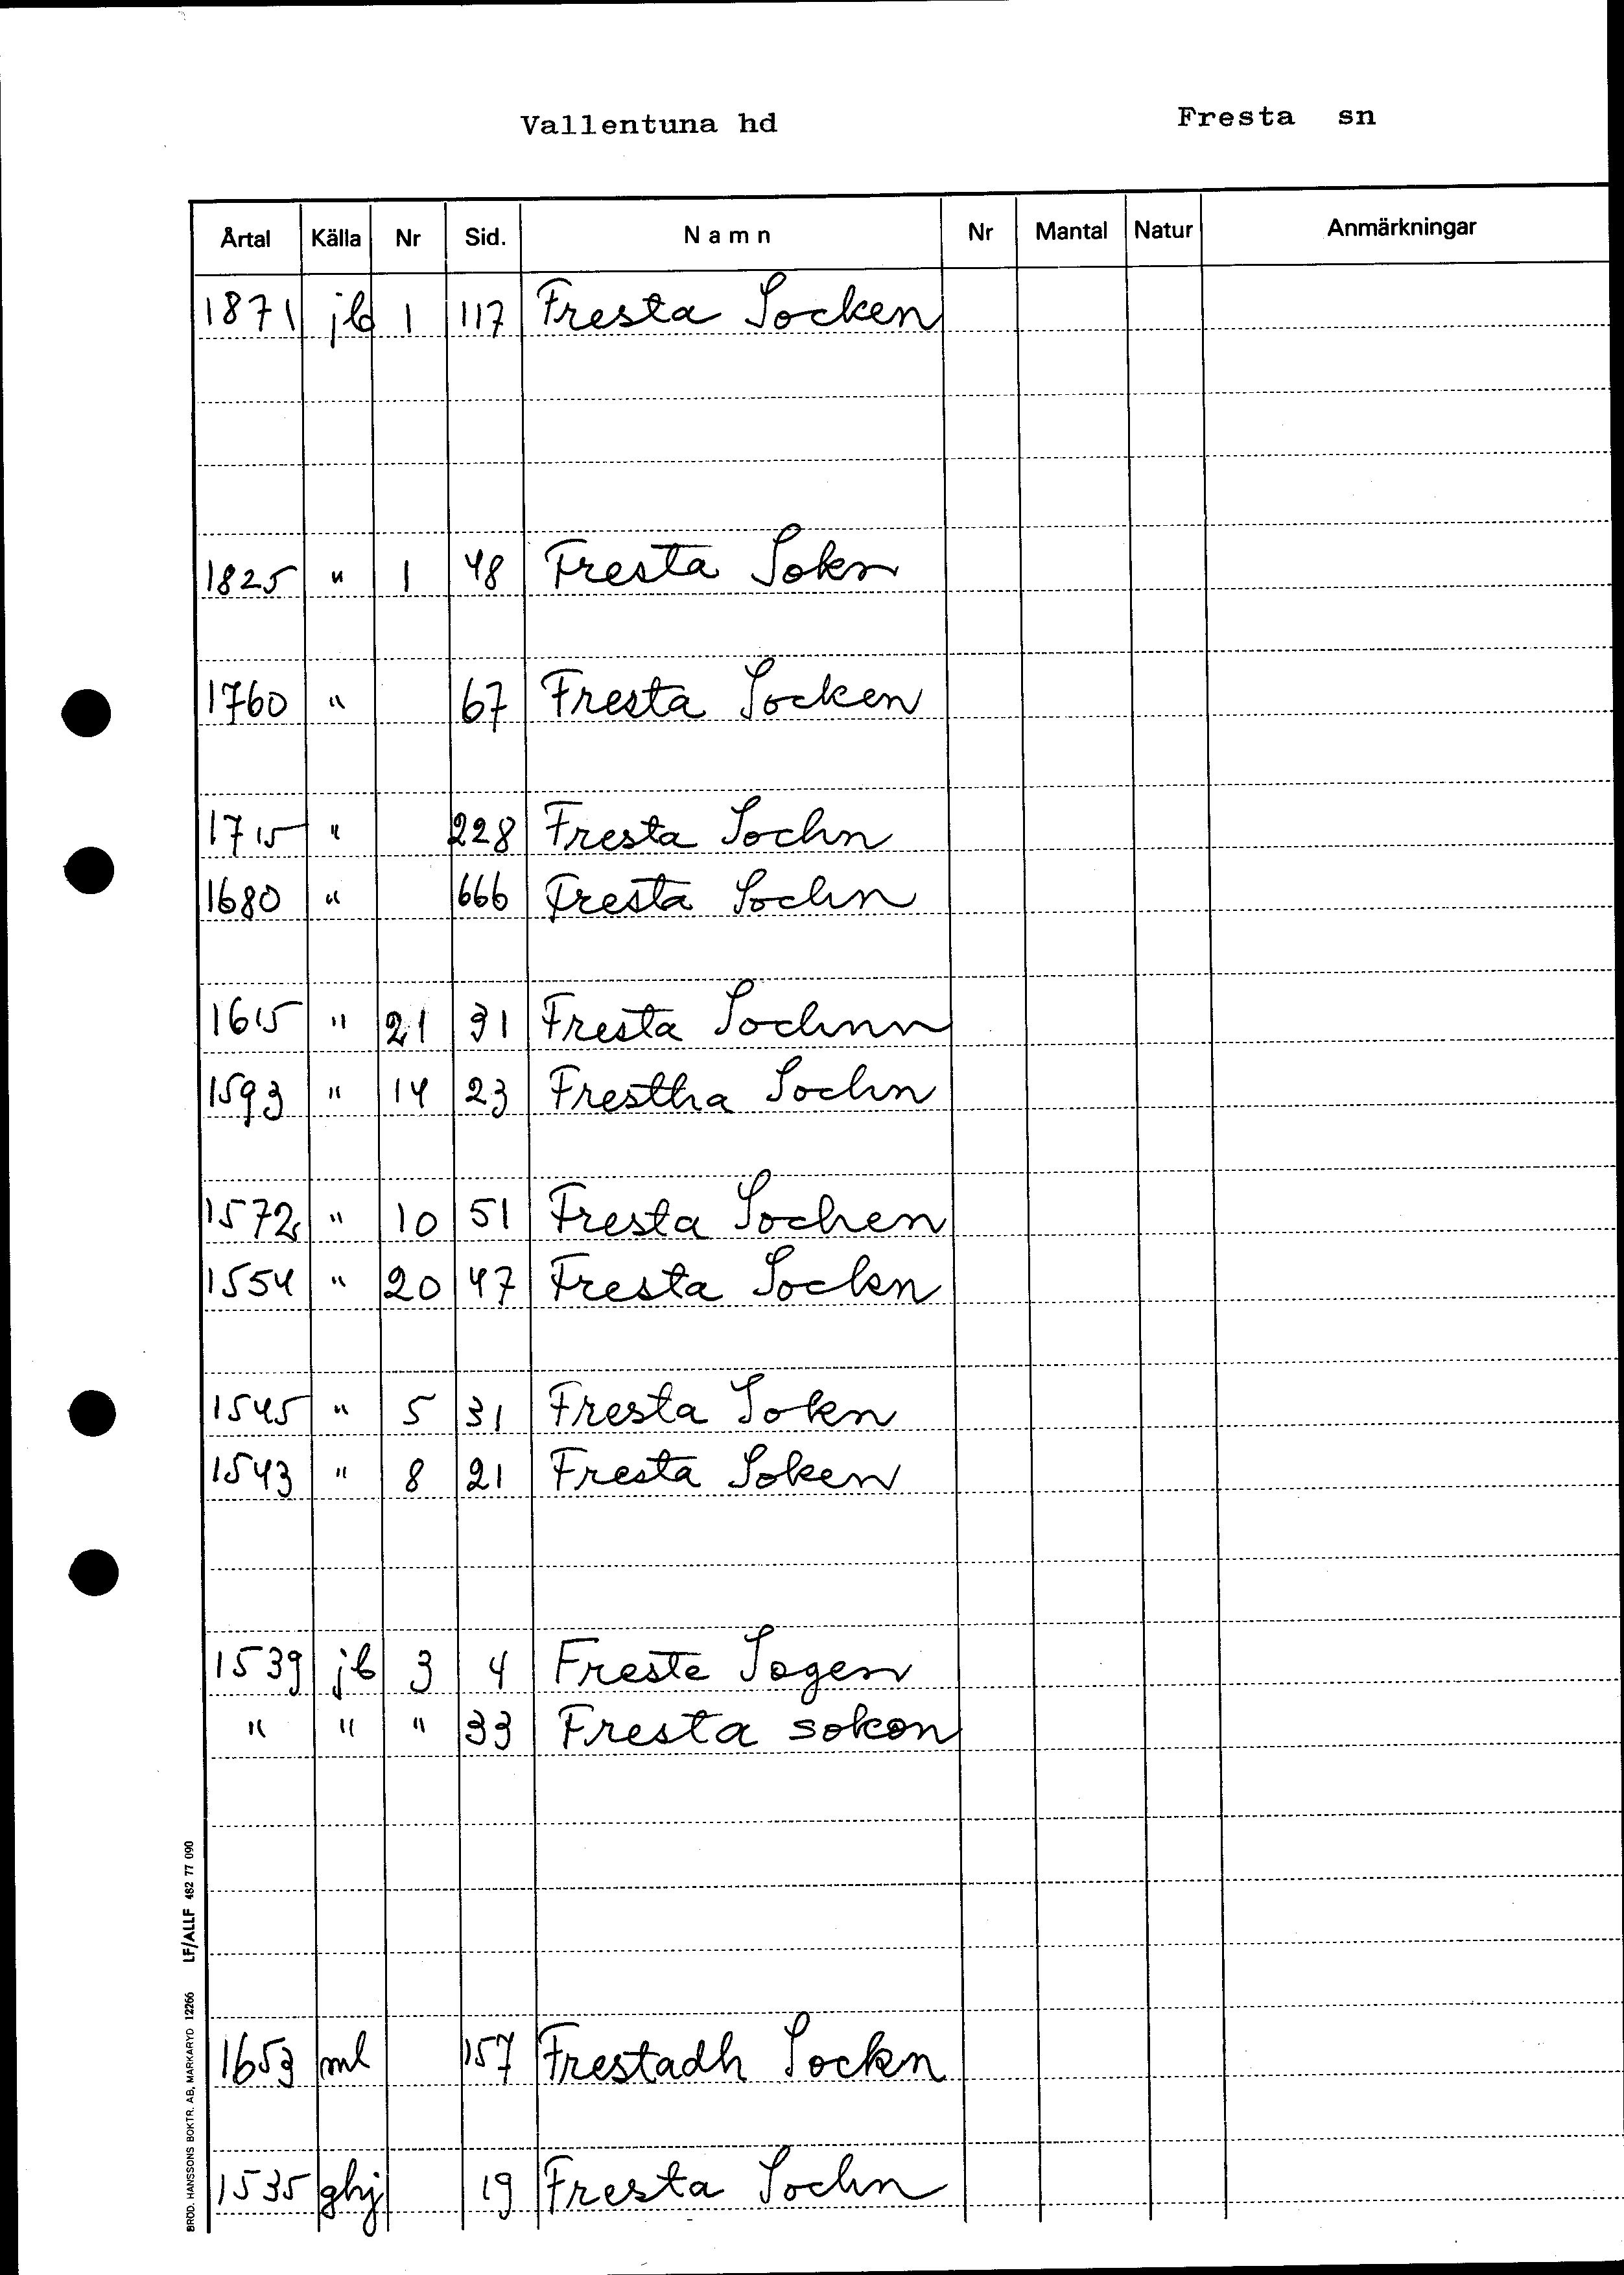 Vallentuna hd Fresta sn
Årtal Källa Nr Sid. Namn Nr Mantal Natur Anmärkningar
1871 jb 1 117 Fresta Socken
1825 " 1 48 Fresta Sokn
1760 " 67 Fresta Socken
1715 " 228 Fresta Sochn
1680 " 666 Fresta Sochn
1615 " 21 31 Fresta Sochnn
1593 " 14 23 Frestha Sochn
1572 " 10 51 Fresta Sochen
1554 " 20 47 Fresta Sockn
1545 " 5 31 Fresta Sokn
1543 " 8 21 Fresta Soken
1539 jb 3 4 Freste Sogen
" " " 33 Fresta sokon
1653 ml 157 Frestadh Sockn
1535 ghj 19 Fresta Sochn
BRÖD. HANSSONS BOKTR. AB, MARKARYD 12266 LF/ALLF 462 77 090